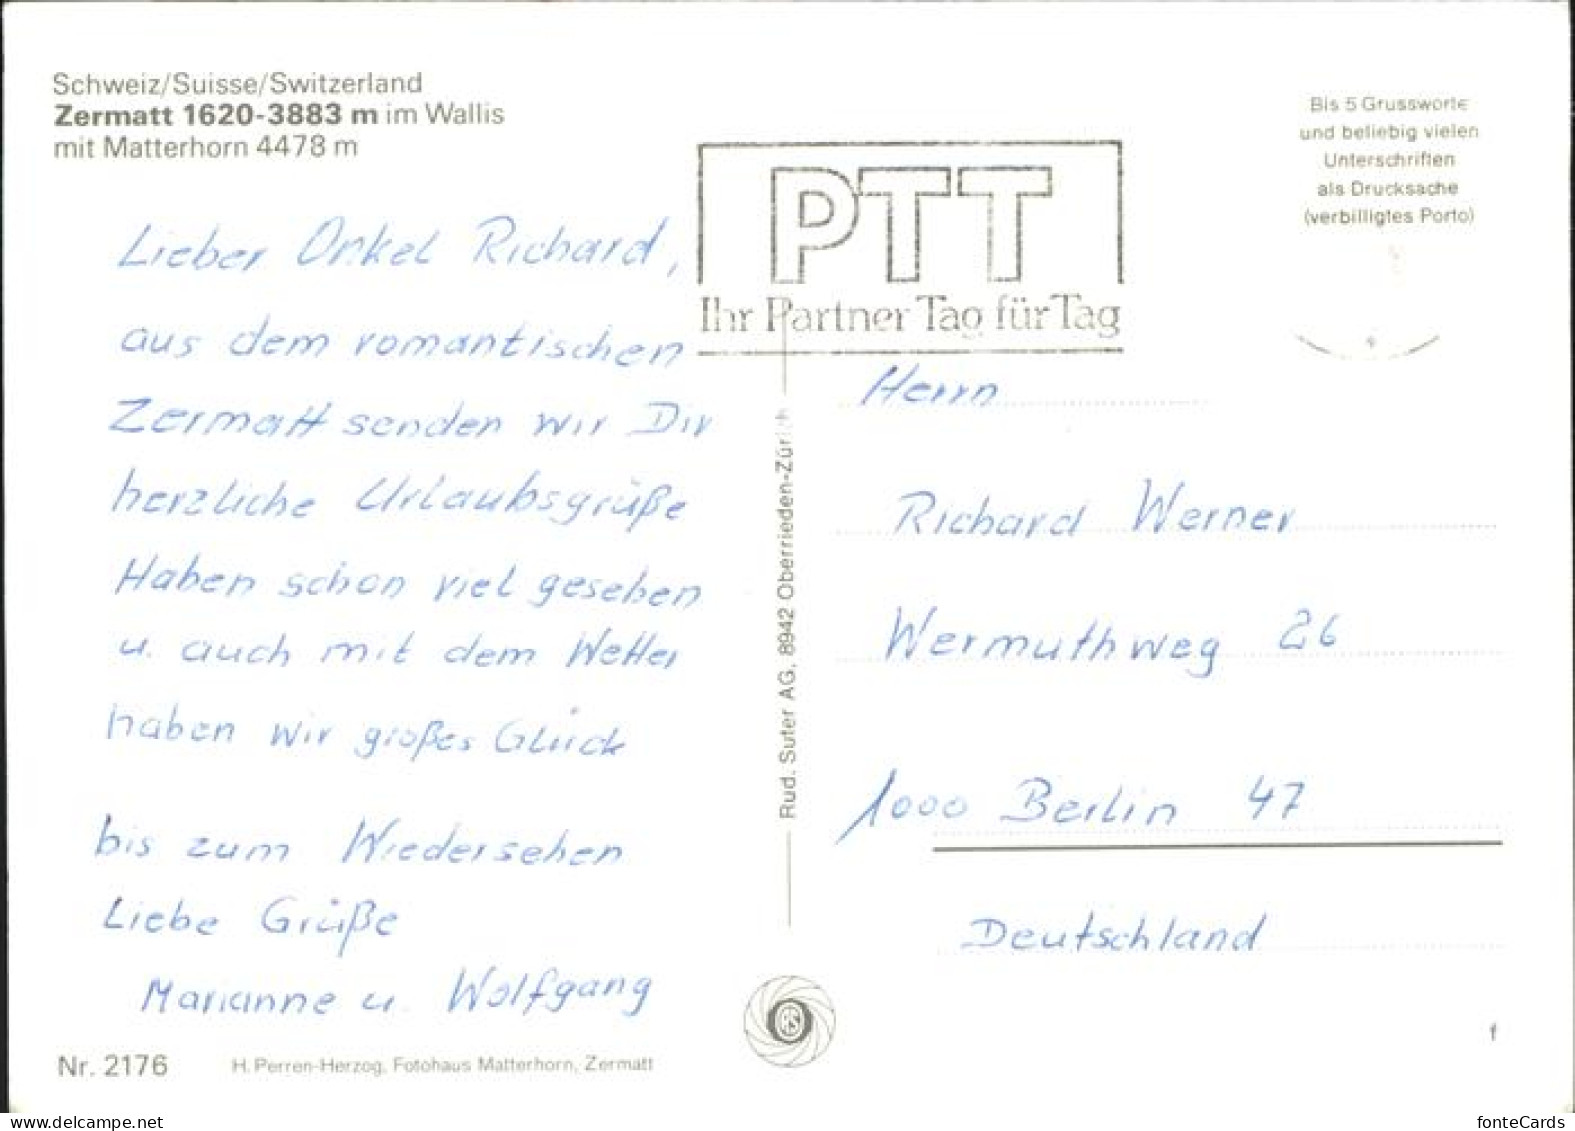 Schweiz/Suisse/Switzerland
Zermatt 1620-3883 m im Wallis
mit Matterhorn 4478 m
Bis 5 Grussworte
und beliebig vielen
Unterschriften
als Drucksache
(verbilligtes Porto)
PTT
Ihr Partner Tag für Tag
Lieber Onkel Richard,
aus dem romantischen
Zermatt senden wir Dir
herzliche Urlaubsgrüße
Haben schon viel gesehen
u. auch mit dem Wetter
haben wir großes Glück
bis zum Wiedersehen
Liebe Grüße
Marianne u. Wolfgang
Rud. Suter AG, 8942 Oberrieden-Zürich
Herrn
Richard Werner
Wermuthweg 26
1000 Berlin 47
Deutschland
RS
f
Nr. 2176
H. Perren-Herzog, Fotohaus Matterhorn, Zermatt
delcampe.net
fonteCards